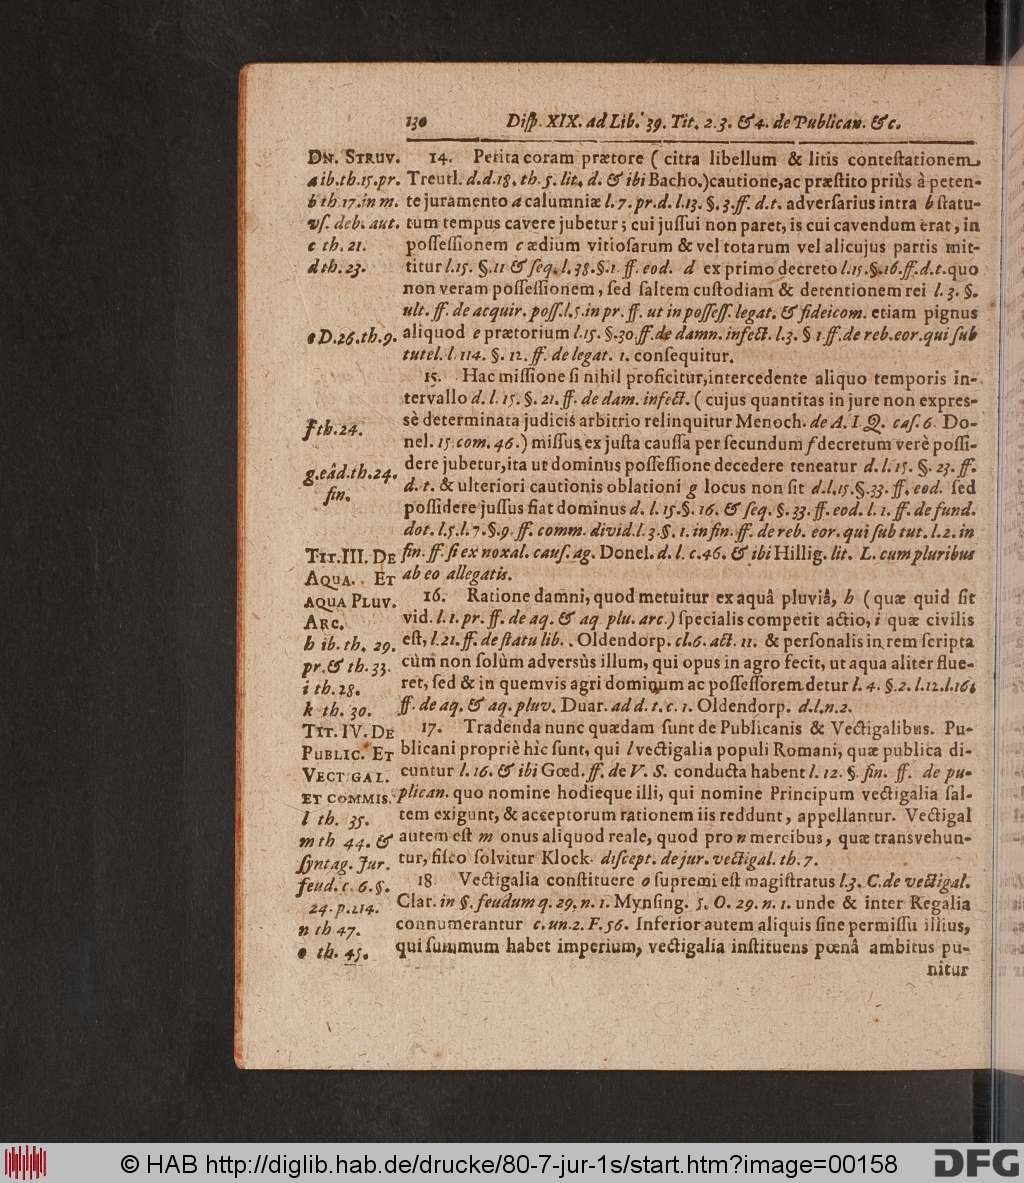 130 Diſp. XIX. ad Lib. 39. Tit. 2. 3. & 4. de Publican. &c.
DN. STRUV.
a ib. th. 15. pr.
b th. 17. in m.
vſ. deb. aut.
c th. 21.
d th. 23.
e D. 26. th. 9.
f th. 24.
g. eâd. th. 24.
fin.
TIT. III. DE
AQUA. ET
AQUA PLUV.
ARC.
h ib. th. 29.
pr. & th. 33.
i th. 28.
k th. 30.
TIT. IV. DE
PUBLIC. ET
VECTIGAL.
ET COMMIS.
l th. 35.
m th 44. &
ſyntag. Jur.
feud. c. 6. §.
24. p. 214.
n th 47.
o th. 45.
14. Petita coram prætore ( citra libellum & litis conteſtationem,
Treutl. d. d. 18. th. 5. lit. d. & ibi Bacho.) cautione, ac præſtito priùs à peten-
te juramento a calumniæ l. 7. pr. d. l. 13. §. 3. ff. d. t. adverſarius intra b ſtatu-
tum tempus cavere jubetur; cui juſſui non paret, is cui cavendum erat, in
poſſeſſionem c ædium vitioſarum & vel totarum vel alicujus partis mit-
titur l. 15. §. 11 & ſeq. l. 38. §. 1. ff. eod. d ex primo decreto l. 15. §. 16. ff. d. t. quo
non veram poſſeſſionem, ſed ſaltem cuſtodiam & detentionem rei l. 3. §.
ult. ff. de acquir. poſſ. l. 5. in pr. ff. ut in poſſeſſ. legat. & fideicom. etiam pignus
aliquod e prætorium l. 15. §. 30. ff. de damn. infect. l. 3. § 1 ff. de reb. eor. qui ſub
tutel. l. 114. §. 12. ff. de legat. 1. conſequitur.
15. Hac miſſione ſi nihil proficitur, intercedente aliquo temporis in-
tervallo d. l. 15. §. 21. ff. de dam. infect. ( cujus quantitas in jure non expres-
sè determinata judicis arbitrio relinquitur Menoch. de A. I. Q. caſ. 6. Do-
nel. 15 com. 46.) miſſus ex juſta cauſſa per ſecundum f decretum verè poſſi-
dere jubetur, ita ut dominus poſſeſſione decedere teneatur d. l. 15. §. 23. ff.
d. t. & ulteriori cautionis oblationi g locus non ſit d. l. 15. §. 33. ff. eod. ſed
poſſidere juſſus fiat dominus d. l. 15. §. 16. & ſeq. §. 33. ff. eod. l. 1. ff. de fund.
dot. l. 5. l. 7. §. 9. ff. comm. divid. l. 3. §. 1. in fin. ff. de reb. eor. qui ſub tut. l. 2. in
fin. ff. ſi ex noxal. cauſ. ag. Donel. d. l. c. 46. & ibi Hillig. lit. L. cum pluribus
ab eo allegatis.
16. Ratione damni, quod metuitur ex aquâ pluviâ, h ( quæ quid ſit
vid. l. 1. pr. ff. de aq. & aq plu. arc.) ſpecialis competit actio, i quæ civilis
eſt, l. 21. ff. de ſtatu lib. . Oldendorp. cl. 6. act. 11. & perſonalis in rem ſcripta
cùm non ſolùm adversùs illum, qui opus in agro fecit, ut aqua aliter flue-
ret, ſed & in quemvis agri dominum ac poſſeſſorem detur l. 4. §. 2. l. 12. l. 16.
ff. de aq. & aq. pluv. Duar. ad d. t. c. 1. Oldendorp. d. l. n. 2.
17. Tradenda nunc quædam ſunt de Publicanis & Vectigalibus. Pu-
blicani propriè hîc ſunt, qui l vectigalia populi Romani, quæ publica di-
cuntur l. 16. & ibi Gœd. ff. de V. S. conducta habent l. 12. §. fin. ff. de pu-
plican. quo nomine hodieque illi, qui nomine Principum vectigalia ſal-
tem exigunt, & acceptorum rationem iis reddunt, appellantur. Vectigal
autem eſt m onus aliquod reale, quod pro n mercibus, quæ transvehun-
tur, fiſco ſolvitur Klock. diſcept. de jur. vectigal. th. 7.
18. Vectigalia conſtituere o ſupremi eſt magiſtratus l. 3. C. de vectigal.
Clar. in §. feudum q. 29. n. 1. Mynſing. 5. O. 29. n. 1. unde & inter Regalia
connumerantur c. un. 2. F. 56. Inferior autem aliquis ſine permiſſu illius,
qui ſummum habet imperium, vectigalia inſtituens pœnâ ambitus pu-
nitur
© HAB http://diglib.hab.de/drucke/80-7-jur-1s/start.htm?image=00158
DFG